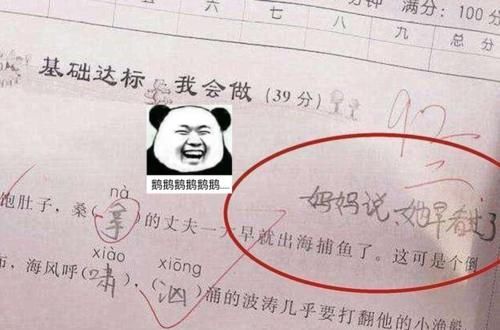 分钟 满分：100分
六 七 八 九 总分
基础达标 我会做（39分）
92
鹅鹅鹅鹅鹅鹅....
妈妈说，她早看过了
nà
饱肚子，桑（拿）的丈夫一大早就出海捕鱼了。这可是个倒
xiào xiōng
海风呼（啸），（汹）涌的波涛几乎要打翻他的小渔船，